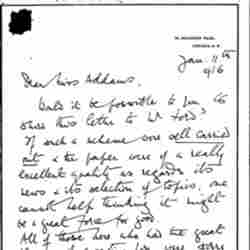 Jan. 11th
1916
Dear Miss Addams.
Would it be possible to
show this letter to Mr Ford?
If such a scheme were well carried
out & the paper were of a really
excellent quality as regards its
news & its selection of topics, one
cannot help thinking it might
be a great Force for good.
All of those who had the great